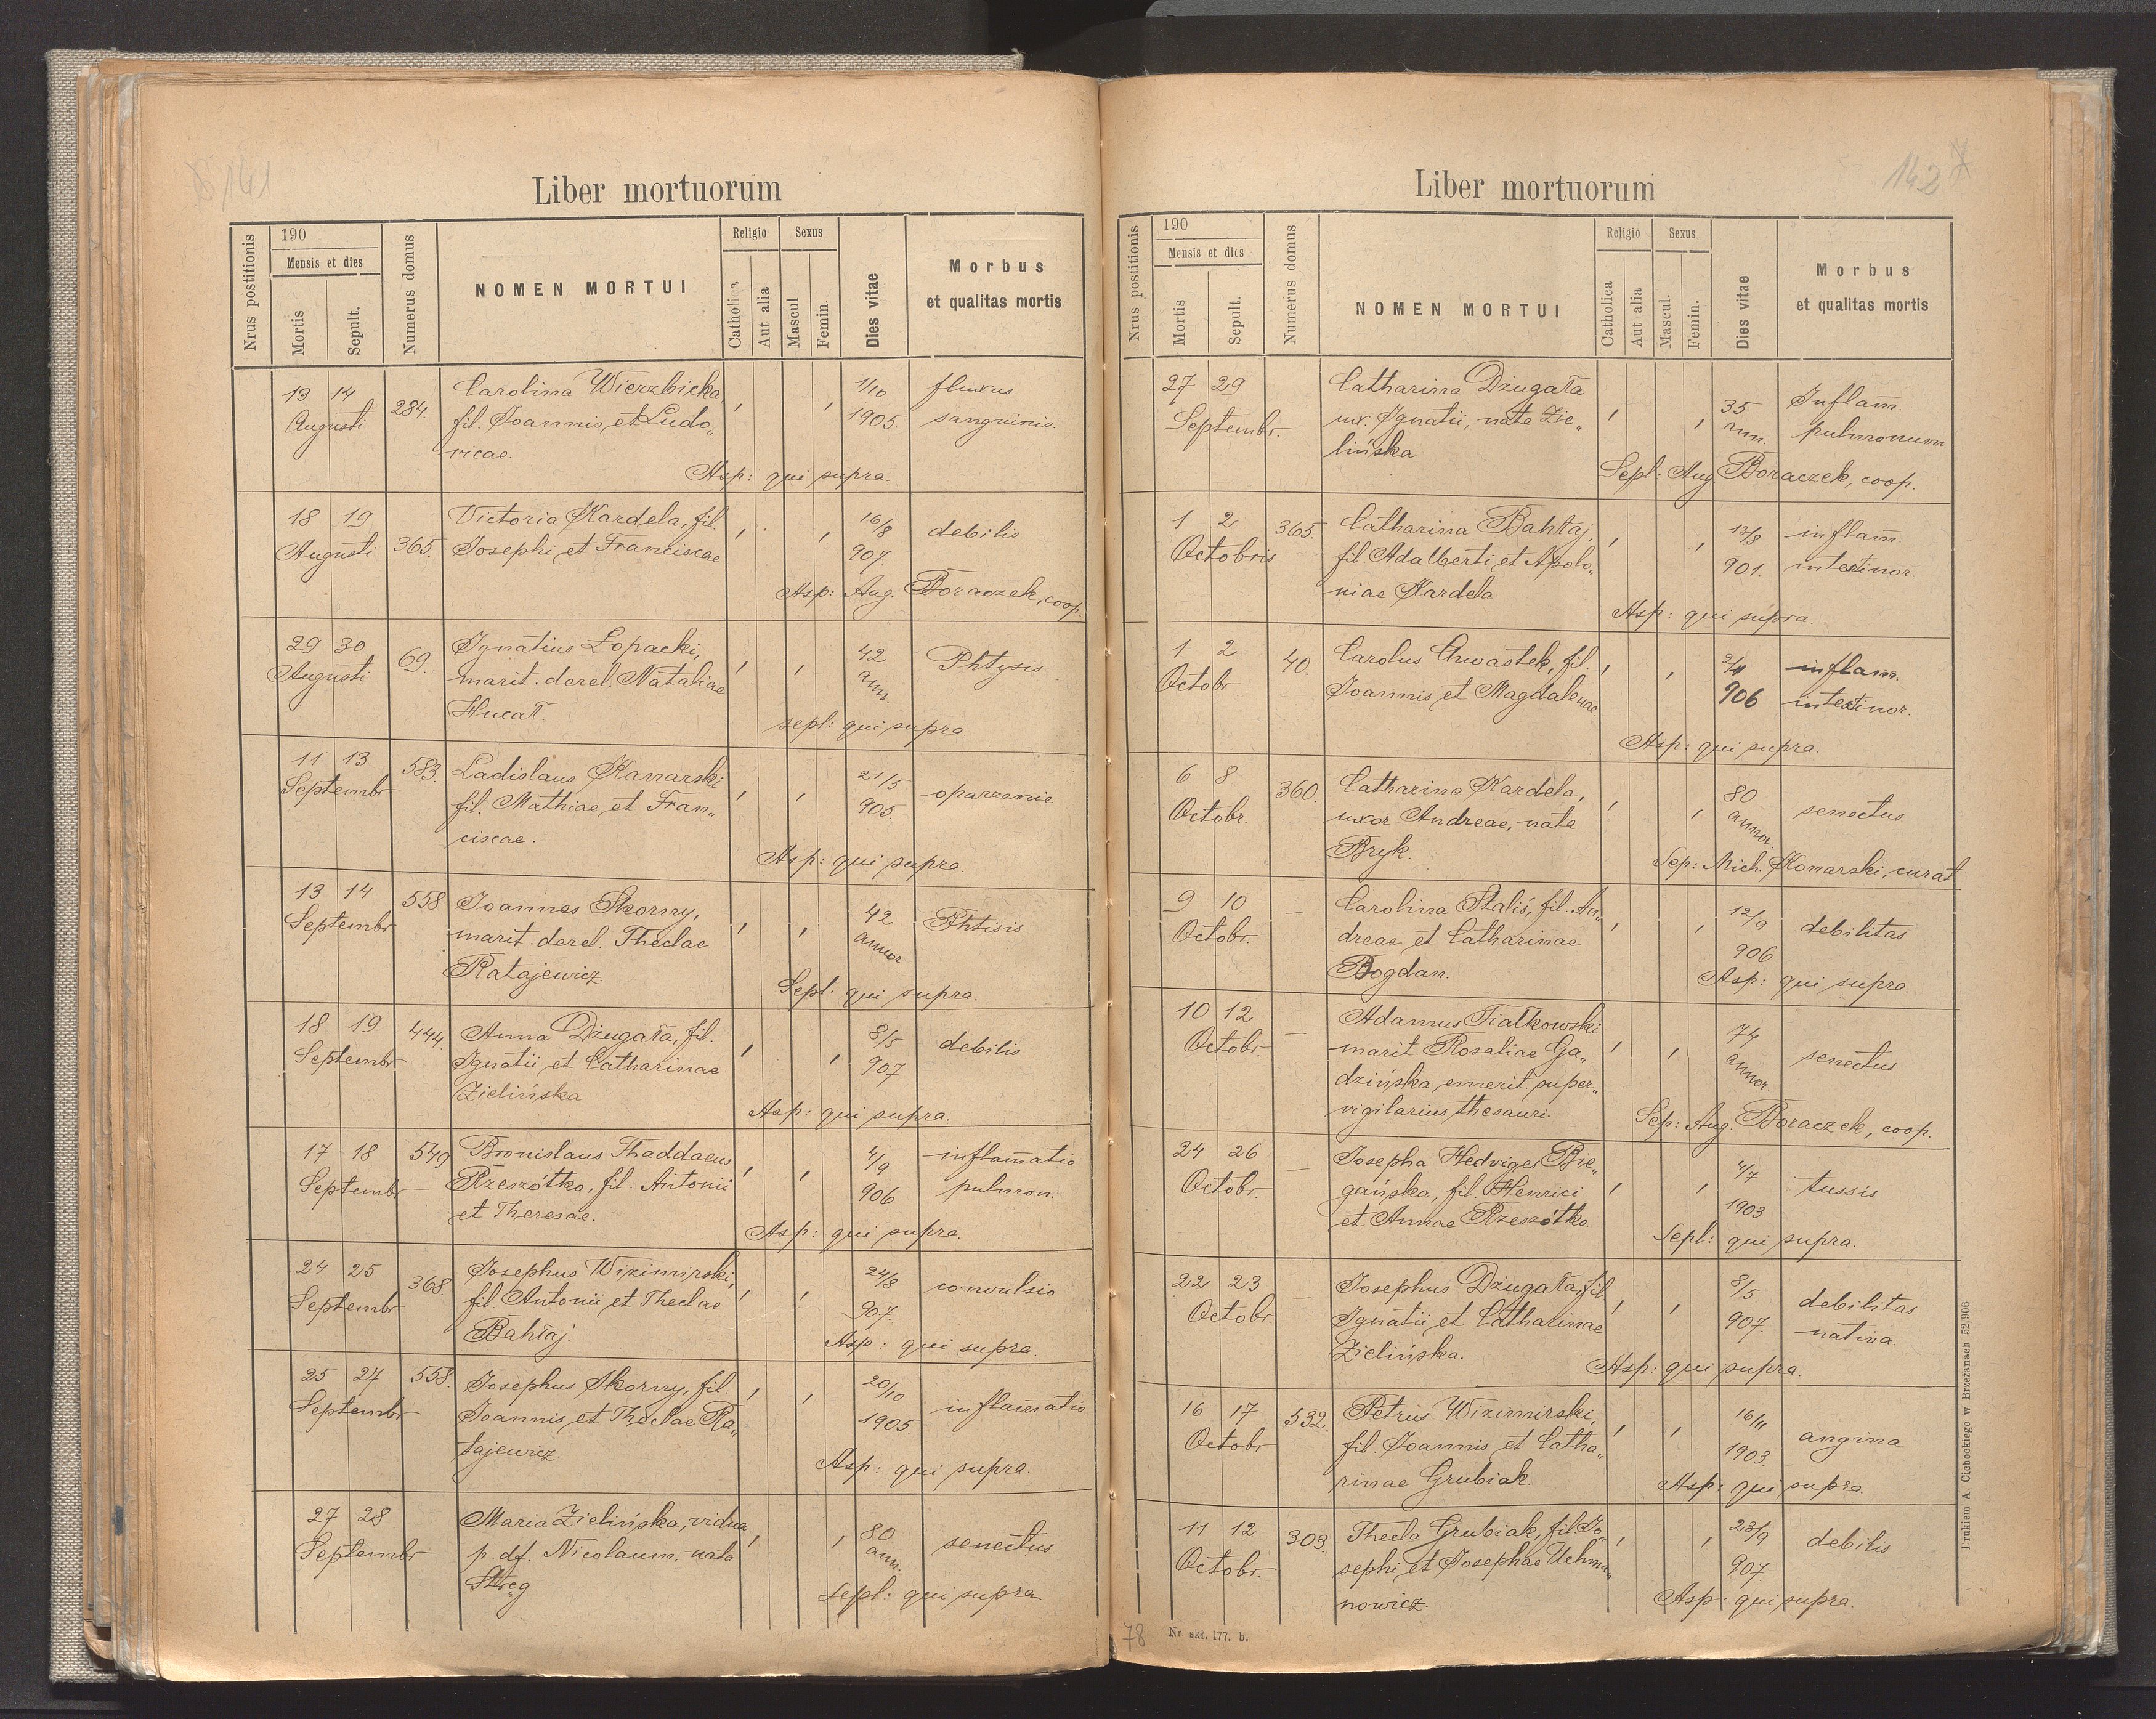 141
Liber mortuorum
Nrus postitionis
190
Mensis et dies
Mortis
Sepult.
Numerus domus
NOMEN MORTUI
Religio
Catholica
Aut alia
Sexus
Mascul
Femin.
Dies vitae
Morbus
et qualitas mortis
13 14 284. Carolina Wierzbicka, 1/10 fluxus
Augusti fil. Joannis et Ludo„ 1905. sanguinis.
vicae.
Asp: qui supra.
18 19 Victoria Kardela, fil. 16/8 debilis
Augusti 365. Josephi et Franciscae 907.
Asp: Aug. Boraczek, coop.
29 30 69. Ignatius Lopacki, 42 Phtysis
Augusti marit. derel. Nataliae ann.
Hucał.
sepl: qui supra.
11 13 583. Ladislaus Kanarski 21/5 oparzenie
Septembr fil. Mathiae et Fran„ 905.
ciscae.
Asp: qui supra.
13 14 558 Joannes Skorny, 42 Phtisis
Septembr marit. derel. Theclae annor
Ratajewicz.
Sepl: qui supra.
18 19 444. Anna Dżugała, fil. 8/5 debilis
Septembr Ignatii et Catharinae 907
Zielińska
Asp: qui supra.
17 18 549 Bronislaus Thaddaeus 4/9 inflam̄atio
Septembr Rzeszótko, fil. Antonii 906 pulmon.
et Theresae.
Asp: qui supra.
24 25 368. Josephus Wizimirski, 24/8 convulsio
Septembr fil. Antonii et Theclae 907.
Bahłaj.
Asp: qui supra.
25 27 558. Josephus Skorny, fil. 20/10 inflam̄atio
Septembr Joannis et Theclae Ra„ 1905.
tajewicz.
Asp: qui supra.
27 28 Maria Zielińska, vidua 80 senectus
Septembr p. df. Nicolaum, nata ann.
Stręg
Sepl: qui supra
142
7
Liber mortuorum
Nrus postitionis
190
Mensis et dies
Mortis
Sepult.
Numerus domus
NOMEN MORTUI
Religio
Catholica
Aut alia
Sexus
Mascul.
Femin.
Dies vitae
Morbus
et qualitas mortis
27 29 Catharina Dżugała 35 Inflam̄.
Septembr. ux. Ignatii, nata Zie„ ann. pulmonum
lińska
Sepl: Aug Boraczek, coop.
1 2 365. Catharina Bahłaj, 13/8 inflam̄
Octobris fil. Adalberti et Apolo„ 901. intestinor.
niae Kardela
Asp: qui supra.
1 2 40. Carolus Chwastek, fil. 2/11 inflam.
Octobr Joannis et Magdalenae 906 intestinor.
Asp: qui supra.
6 8 360. Catharina Kardela, 80 senectus
Octobr. uxor Andreae, nata annor.
Bryk.
Sep: Mich. Konarski, curat
9 10 – Carolina Staliś, fil. An„ 12/9 debilitas
Octobr. dreae et Catharinae 906
Bogdan.
Asp: qui supra.
10 12 – Adamus Fiałkowski 74 senectus
Octobr. marit. Rosaliae Ga„ annor.
dzińska, emerit. super„
vigilarius thesauri.
Sep: Aug. Boraczek, coop.
24 26 – Josepha Hedviges Bie„ 4/7 tussis
Octobr. gańska, fil. Henrici 1903
et Annae Rzeszótko.
Sepl: qui supra.
22 23 – Josephus Dżugała, fil. 8/5 debilitas
Octobr. Ignatii et Catharinae 907. nativa.
Zielińska.
Asp: qui supra.
16 17 532. Petrus Wizimirski, 16/11 angina
Octobr fil. Joannis et Catha„ 1903.
rinae Grubiak.
Asp: qui supra.
11 12 303. Thecla Grubiak, fil Jo„ 23/9 debilis
Octobr. sephi et Josephae Uchma„ 907.
nowicz.
Asp: qui supra.
Drukiem A. Olebockiego w Brzeżanach 52,906
78 Nr. skł. 177. b.